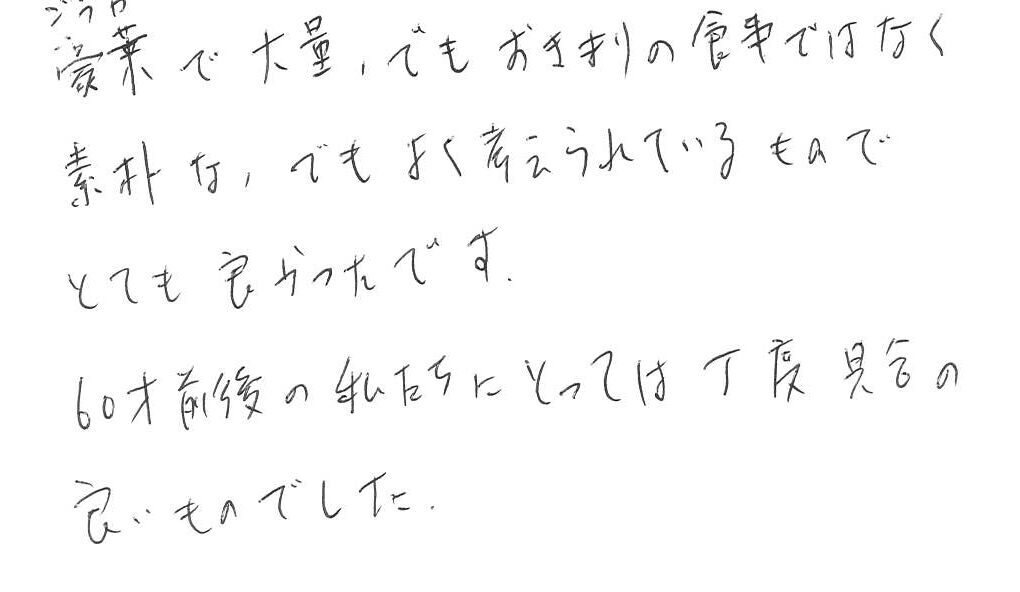 豪華で大量、でもおきまりの食事ではなく
素朴な、でもよく考えられているもので
とても良かったです.
60才前後の私たちにとっては丁度具合の
良いものでした.